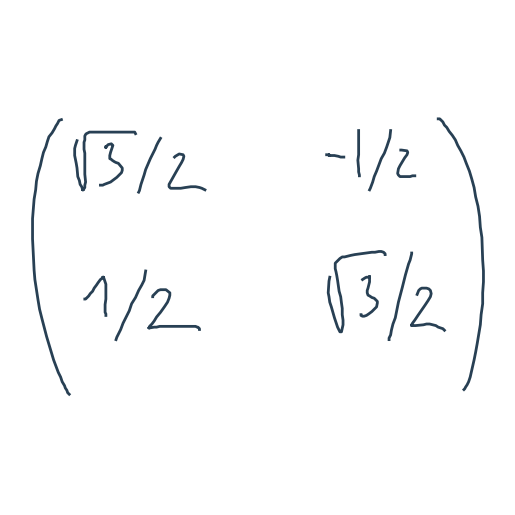 √3/2 -1/2
1/2 √3/2